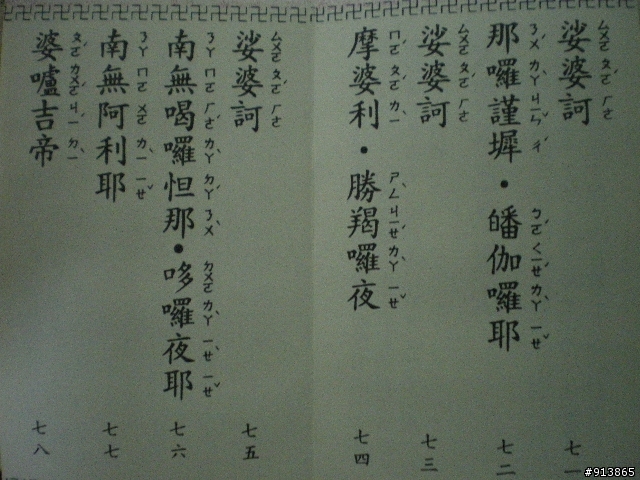 娑婆訶 七一
那囉謹墀•皤伽囉耶 七二
娑婆訶 七三
摩婆利•勝羯囉夜 七四
娑婆訶 七五
南無喝囉怛那•哆囉夜耶 七六
南無阿利耶 七七
婆嚧吉帝 七八
#913865